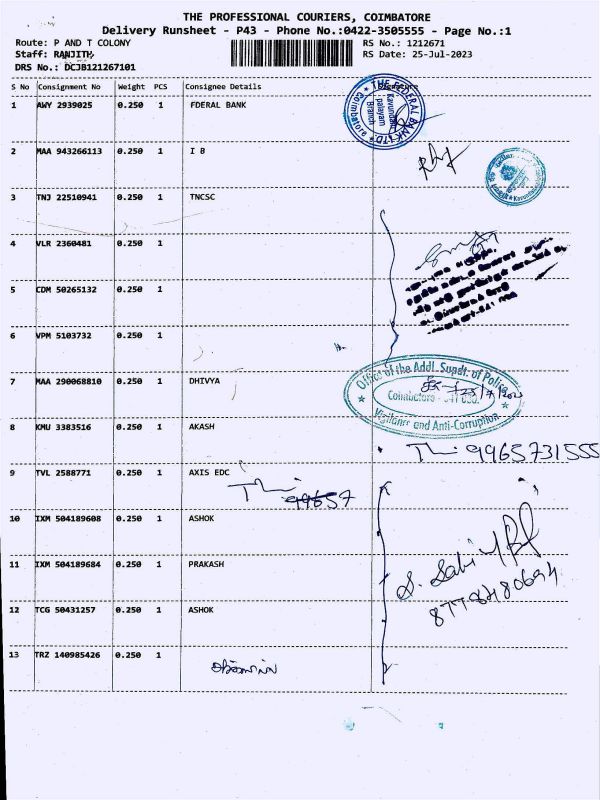 THE PROFESSIONAL COURIERS, COIMBATORE
Delivery Runsheet - P43 - Phone No.:0422-3505555 - Page No.:1
Route: P AND T COLONY
RS No.: 1212671
Staff: RANJITH
RS Date: 25-Jul-2023
DRS No.: DCJB121267101
S No Consignment No Weight PCS Consignee Details Signature
1 AWY 2939025 0.250 1 FDERAL BANK
THE FEDERAL BANK LTD
Coimbatore
Branch
2 MAA 943266113 0.250 1 I B
3 TNJ 22510941 0.250 1 TNCSC
4 VLR 2360481 0.250 1
5 CDM 50265132 0.250 1
6 VPM 5103732 0.250 1
Office of the Addl. Supdt. of Police
Vigilance and Anti-Corruption
7 MAA 290068810 0.250 1 DHIVYA
8 KMU 3383516 0.250 1 AKASH
9965731555
9 TVL 2588771 0.250 1 AXIS EDC
99657
10 IXM 504189608 0.250 1 ASHOK
11 IXM 504189684 0.250 1 PRAKASH
8778480694
12 TCG 50431257 0.250 1 ASHOK
13 TRZ 140985426 0.250 1